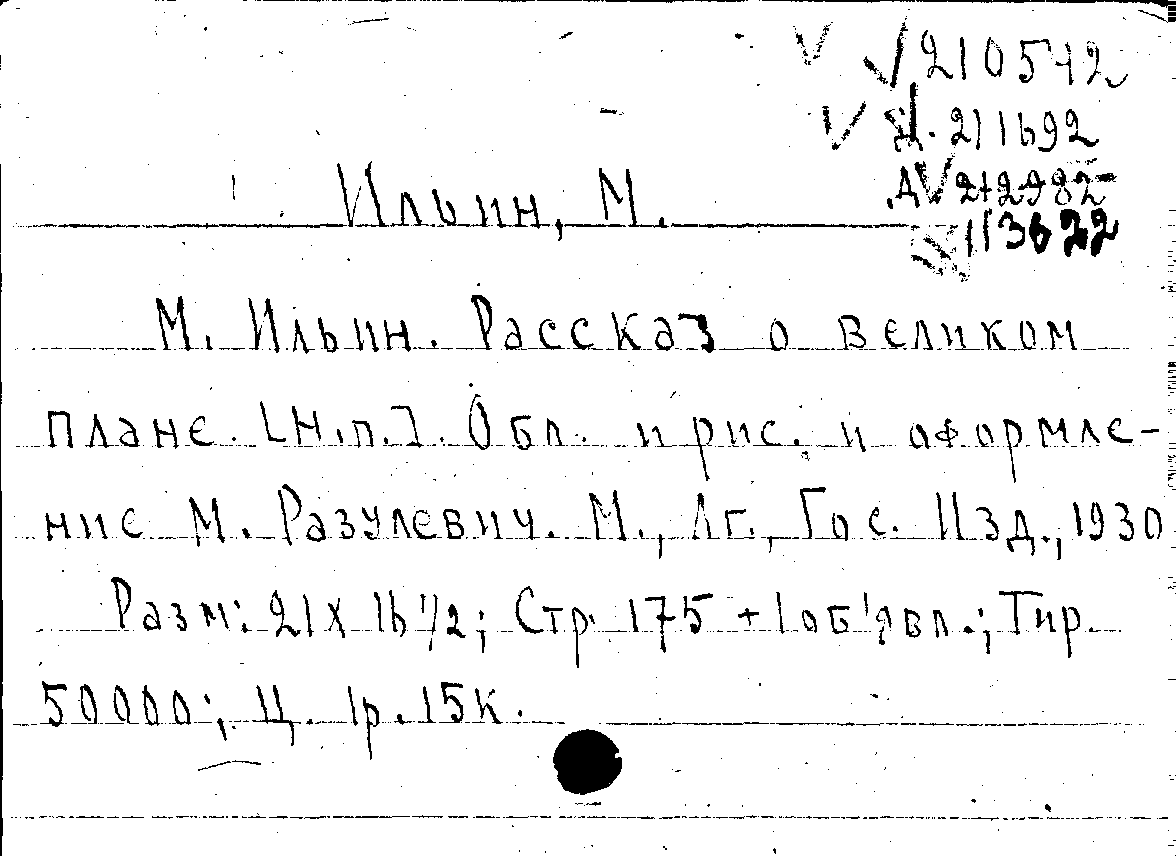 210542
Д. 211692
Ильин, М.
Д 212982
113622
М. Ильин. Рассказ о великом
плане. [Н.п.]. Обл. и рис. и оформле-
ние М. Разулевич. М., Лг., Гос. Изд., 1930
Разм: 21 х 16 1/2; Стр. 175 + 1 об'явл.; Тир.
50000; Ц. 1р. 15к.